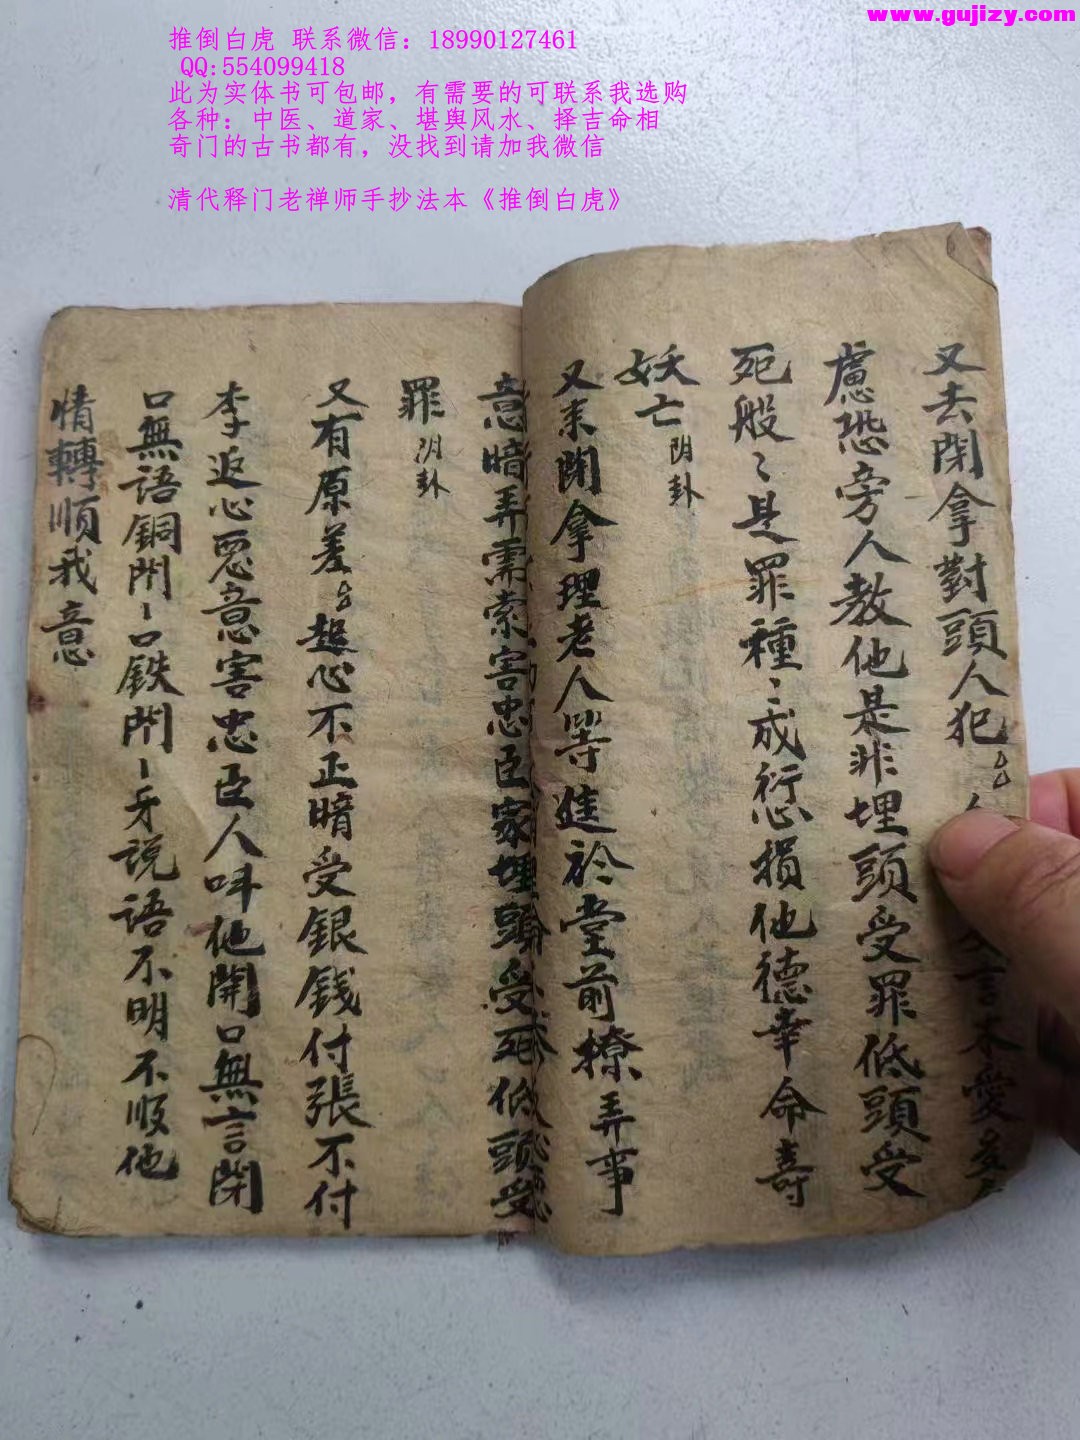 www.gujizy.com
推倒白虎 联系微信：18990127461
QQ:554099418
此为实体书可包邮，有需要的可联系我选购
各种：中医、道家、堪舆风水、择吉命相
奇门的古书都有，没找到请加我微信
清代释门老禅师手抄法本《推倒白虎》
又去閉拿對頭人犯
言不愛多
慮恐旁人教他是非埋頭受罪低頭受
死般〻是罪種〻成愆損他德幸命壽
妖亡 阴卦
又來閉拿理老人等進於堂前撩弄事
意暗弄需索害忠臣家埋頭受死低頭受
罪 阴卦
又有原差 起心不正暗受銀錢付張不付
李返心惡意害忠臣人呌他開口無言閉
口無語銅閂〻口鉄閂〻牙説語不明不順他
情轉順我意